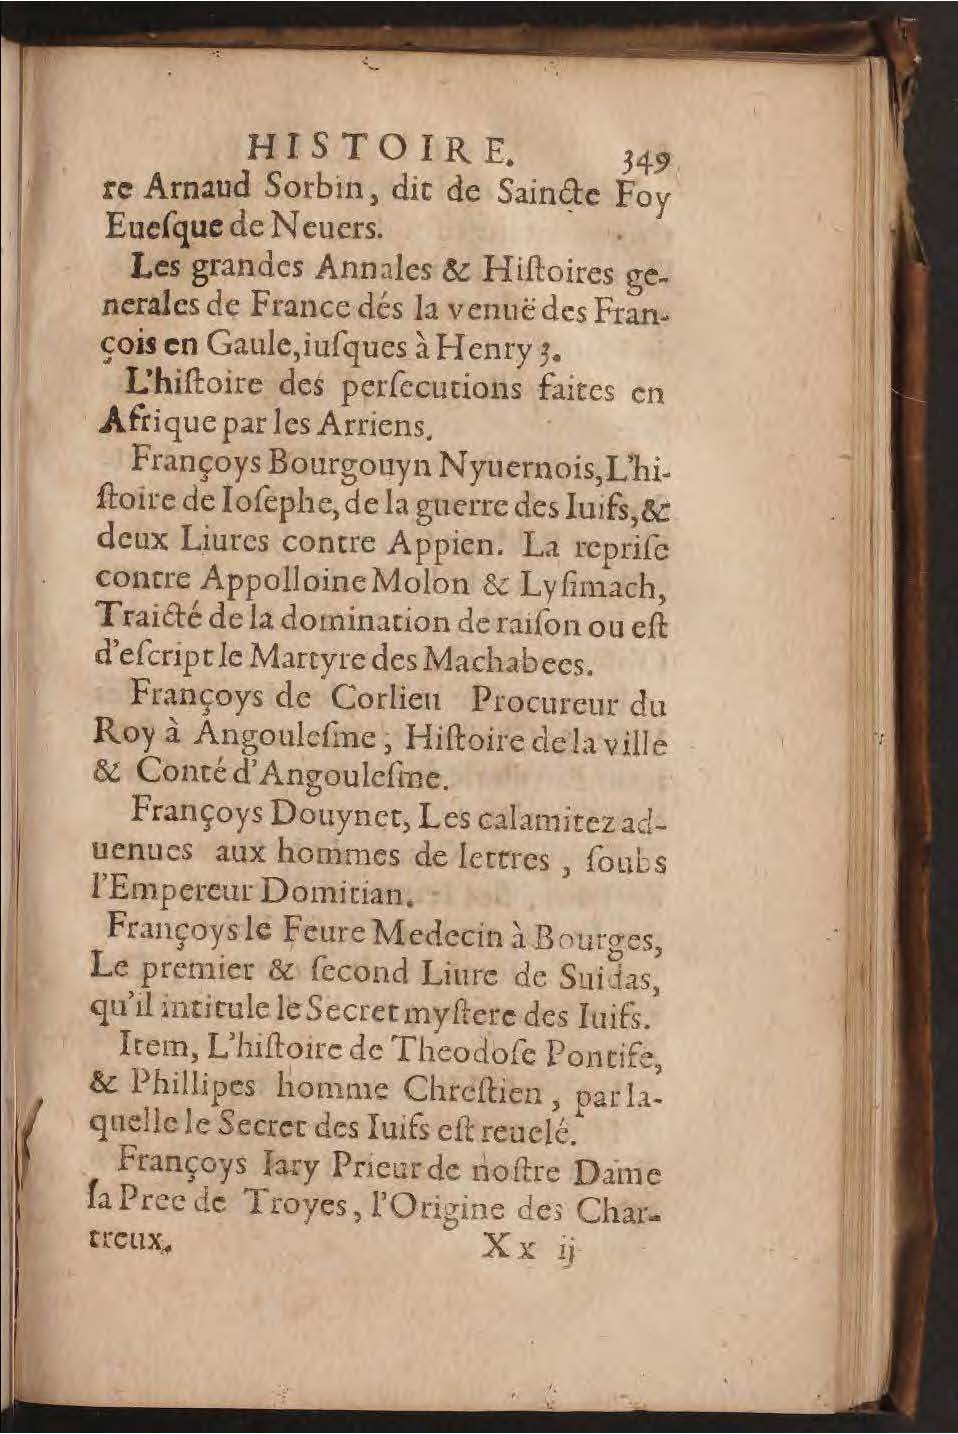 HISTOIRE. 349
re Arnaud Sorbin, dit de Saincte Foy
Eueſque de Neuers.
Les grandes Annales & Hiſtoires ge-
nerales de France dés la venuë des Fran-
çois en Gaule, iuſques à Henry 3.
L'hiſtoire des perſecutions faites en
Afrique par les Arriens.
Françoys Bourgouyn Nyuernois, L'hi-
ſtoire de Ioſephe, de la guerre des Iuifs, &
deux Liures contre Appien. La repriſe
contre Appolloine Molon & Lyſimach,
Traicté de la domination de raiſon ou eſt
d'eſcript le Martyre des Machabees.
Françoys de Corlieu Procureur du
Roy à Angouleſme, Hiſtoire de la ville
& Conté d'Angouleſme.
Françoys Douynet, Les calamitez ad-
uenues aux hommes de lettres, ſoubs
l'Empereur Domitian.
Françoys le Feure Medecin à Bourges,
Le premier & ſecond Liure de Suidas,
qu'il intitule le Secret myſtere des Iuifs.
Item, L'hiſtoire de Theodoſe Pontife,
& Phillipes homme Chreſtien, par la-
quelle le Secret des Iuifs eſt reuelé.
Françoys Iary Prieur de noſtre Dame
la Pree de Troyes, l'Origine des Char-
treux.
Xx ij